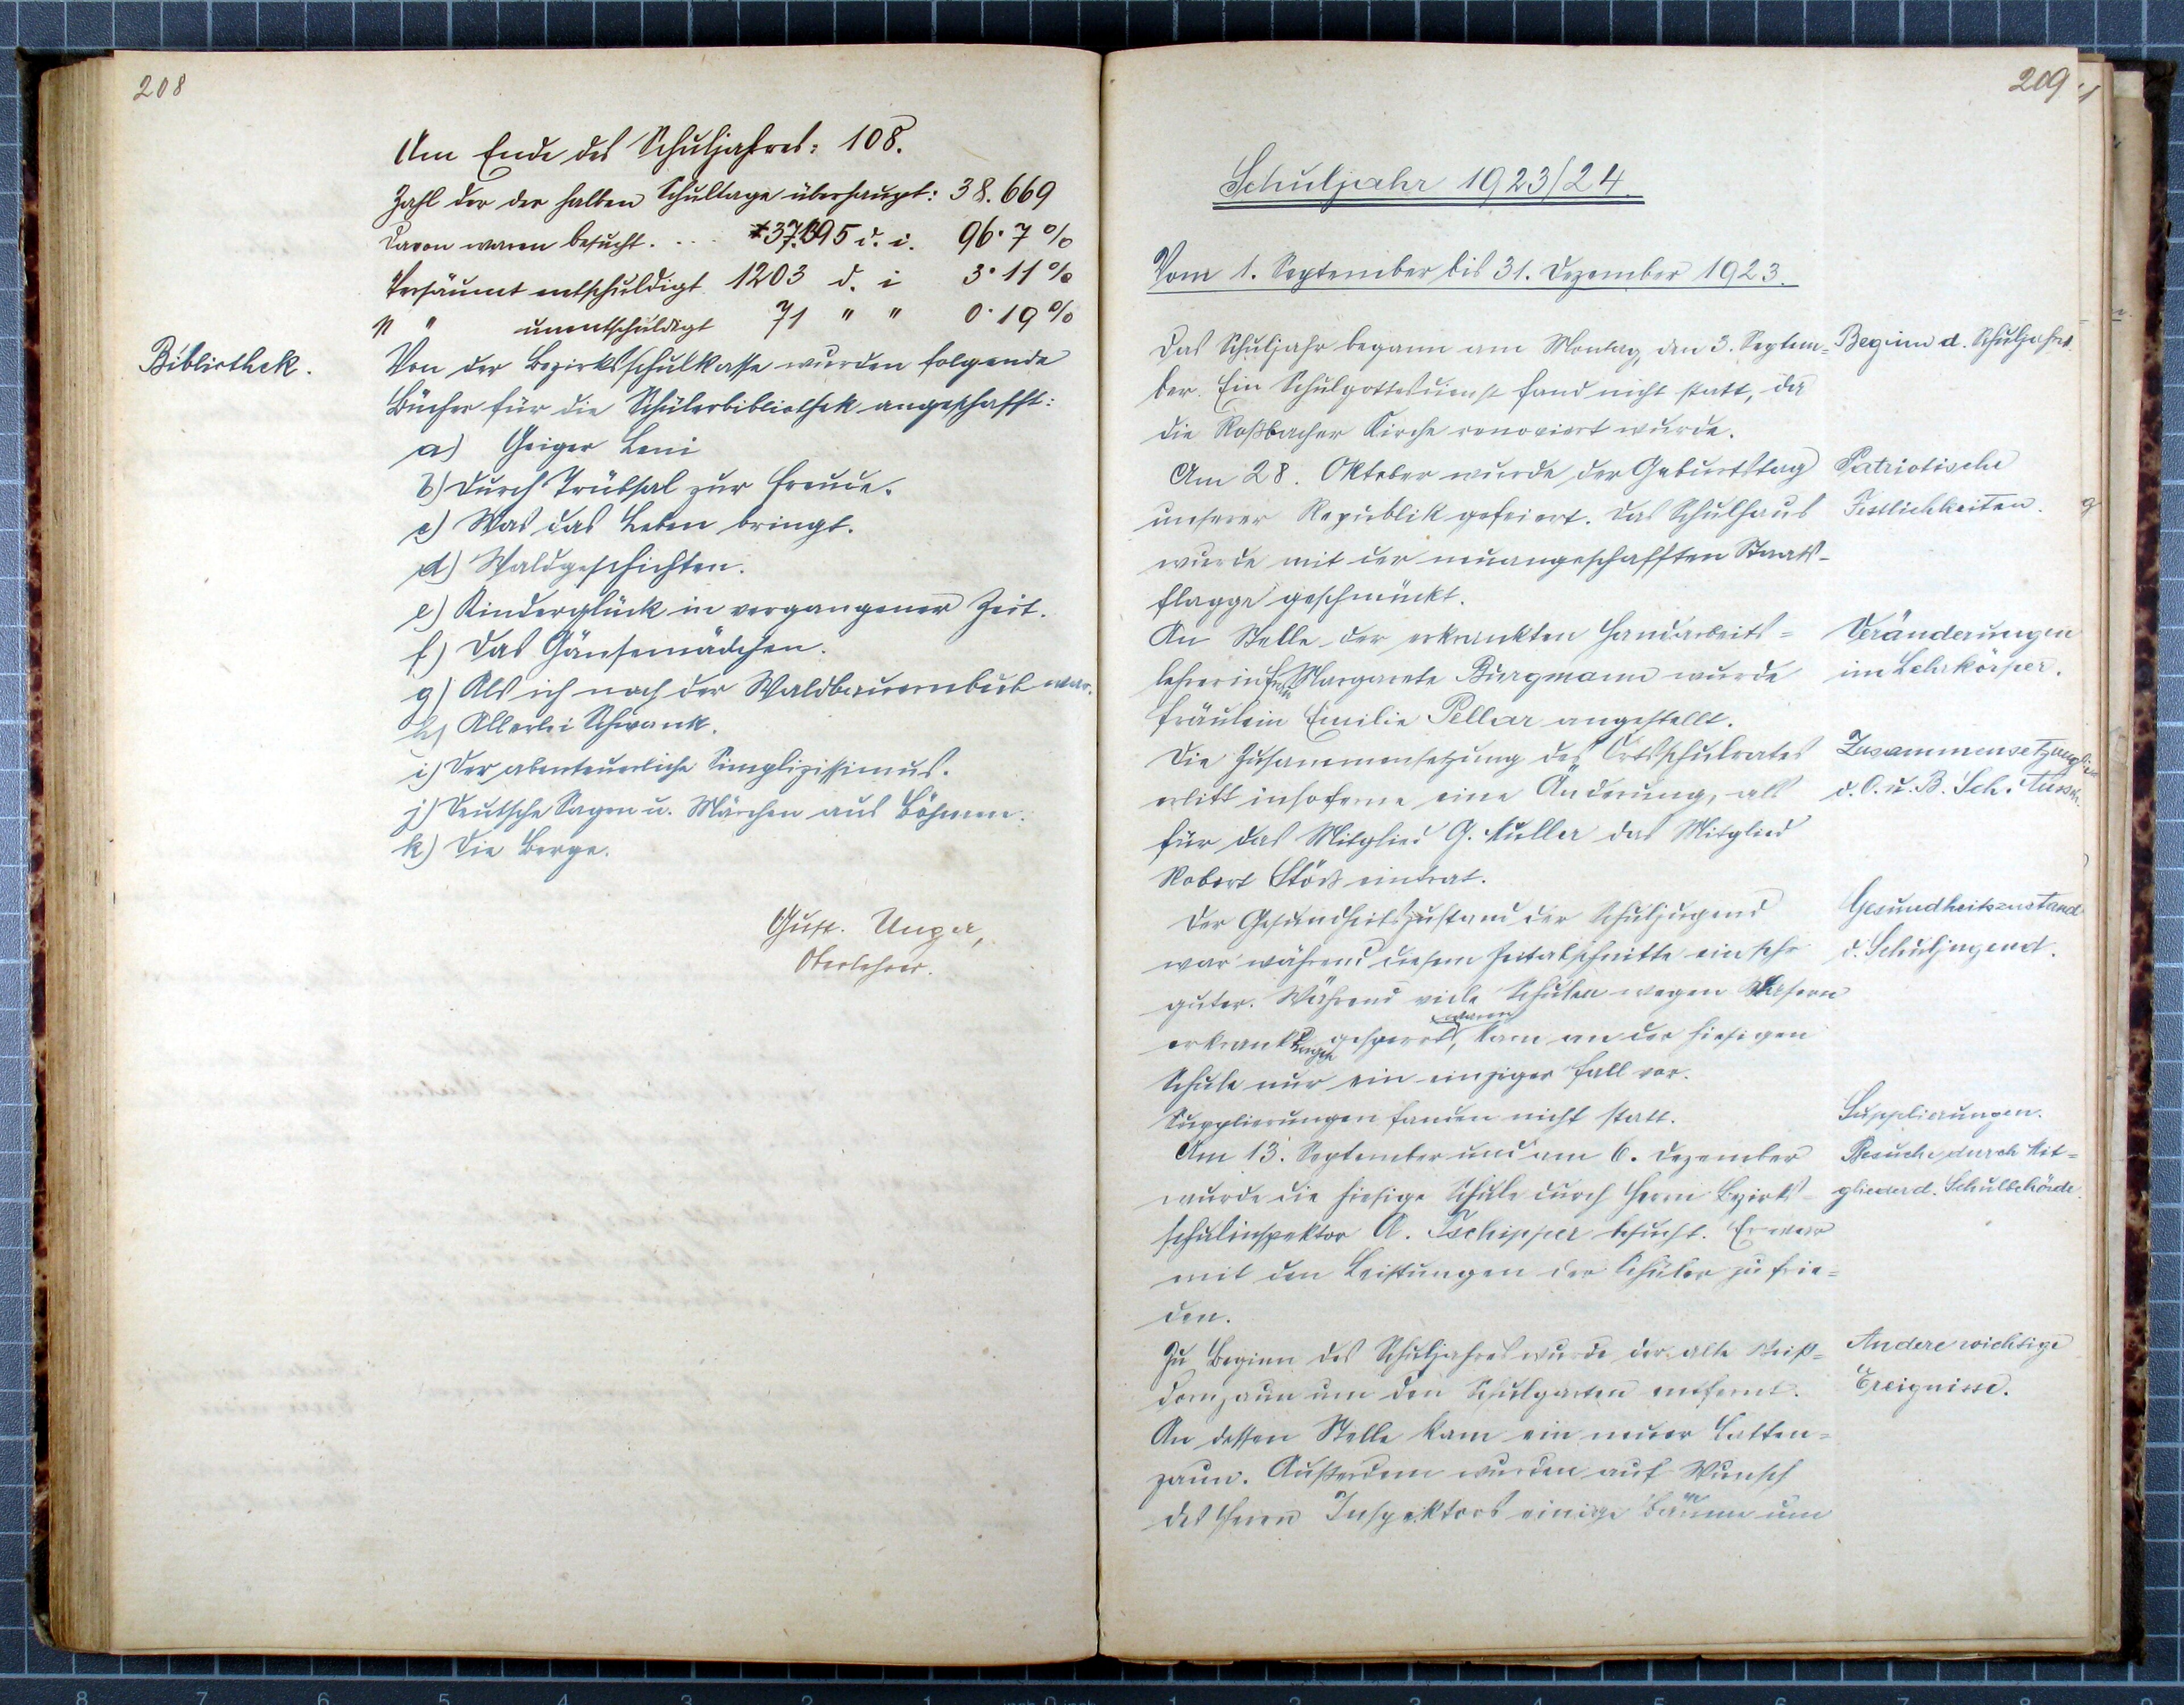 208
Am Ende des Schuljahres: 108.
Zahl der der halben Schultage überhaupt: 38.669
Davon waren besucht. ... 37.395 d. i. 96·7%
Versäumt entschuldigt 1203 d. i 3·11%
" " unentschuldigt 71 " " 0·19%
Bibliothek.
Von der Bezirksschulkasse wurden folgende
Bücher für die Schülerbibliothek angeschafft:
a) Geiger Leni
b) Durch Trübsal zur Freude.
c) Was das Leben bringt.
d) Waldgeschichten.
e) Kinderglück in vergangener Zeit.
f) Das Gänsemädchen.
g) Als ich noch der Waldbauernbub war.
h) Allerlei Schwank.
i) Der abenteuerliche Simplizissimus.
j) Deutsche Sagen u. Märchen aus Böhmen.
k) Die Berge.
Gust. Unger,
Oberlehrer.
209
Schuljahr 1923/24.
Vom 1. September bis 31. Dezember 1923.
Das Schuljahr begann am Montag, den 3. Septem=
Beginn d. Schuljahres
ber. Ein Schulgottesdienst fand nicht statt, da
die Roßbacher Kirche renoviert wurde.
Am 28. Oktober wurde der Geburtstag
Patriotische
unserer Republik gefeiert. Das Schulhaus
Festlichkeiten.
wurde mit der neuangeschafften Staats-
flagge geschmückt.
An Stelle der erkrankten Handarbeits=
Veränderungen
lehrerin Margarete Burgmann wurde
im Lehrkörper.
Fräulein Emilie Pellar angestellt.
Die Zusammensetzung des Ortsschulrates
Zusammensetzung
erlitt insoferne eine Änderung, als
d. O. u. B. Sch.
für das Mitglied G. Müller das Mitglied
Robert Stöß eintrat.
Der Gesundheitszustand der Schuljugend
Gesundheitszustand
war während diesem Zeitabschnitte ein sehr
d. Schuljugend.
guter. Während viele Schulen wegen Masern
erkrankungen gesperrt waren, kam an der hiesigen
Schule nur ein einziger Fall vor.
Supplierungen fanden nicht statt.
Supplierungen.
Am 13. September und am 6. Dezember
Besuche durch Mit=
wurde die hiesige Schule durch Herrn Bezirks=
glieder d. Schulbehörde.
schulinspektor A. Tschipper besucht. Er war
mit den Leistungen der Schüler zufrie=
den.
Zu Beginn des Schuljahres wurde der alte Weiß=
Andere wichtige
dornzaun um den Schulgarten entfernt.
Ereignisse.
An dessen Stelle kam ein neuer Latten=
zaun. Außerdem wurden auf Wunsch
des Herrn Inspektors einige Bäume um